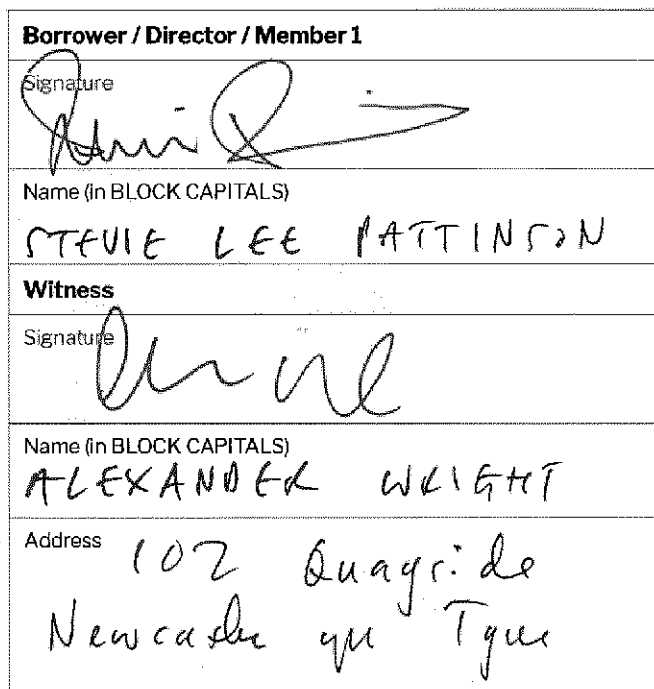 Borrower / Director / Member 1
Signature
Name (in BLOCK CAPITALS)
STEVIE LEE PATTINSON
Witness
Signature
Name (in BLOCK CAPITALS)
ALEXANDER WRIGHT
Address 102 Quayside
Newcastle upon Tyne